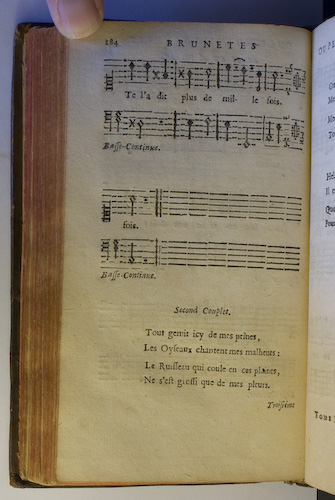 184 BRUNETES
Te l'a dit plus de mil- le fois.
Basse-Continue.
fois.
Basse-Continue.
Second Couplet.
Tout gemit icy de mes peines,
Les Oyseaux chantent mes malheurs :
Le Ruisseau qui coule en ces plaines,
Ne s'est grossi que de mes pleurs.
Troisiéme
OU PE